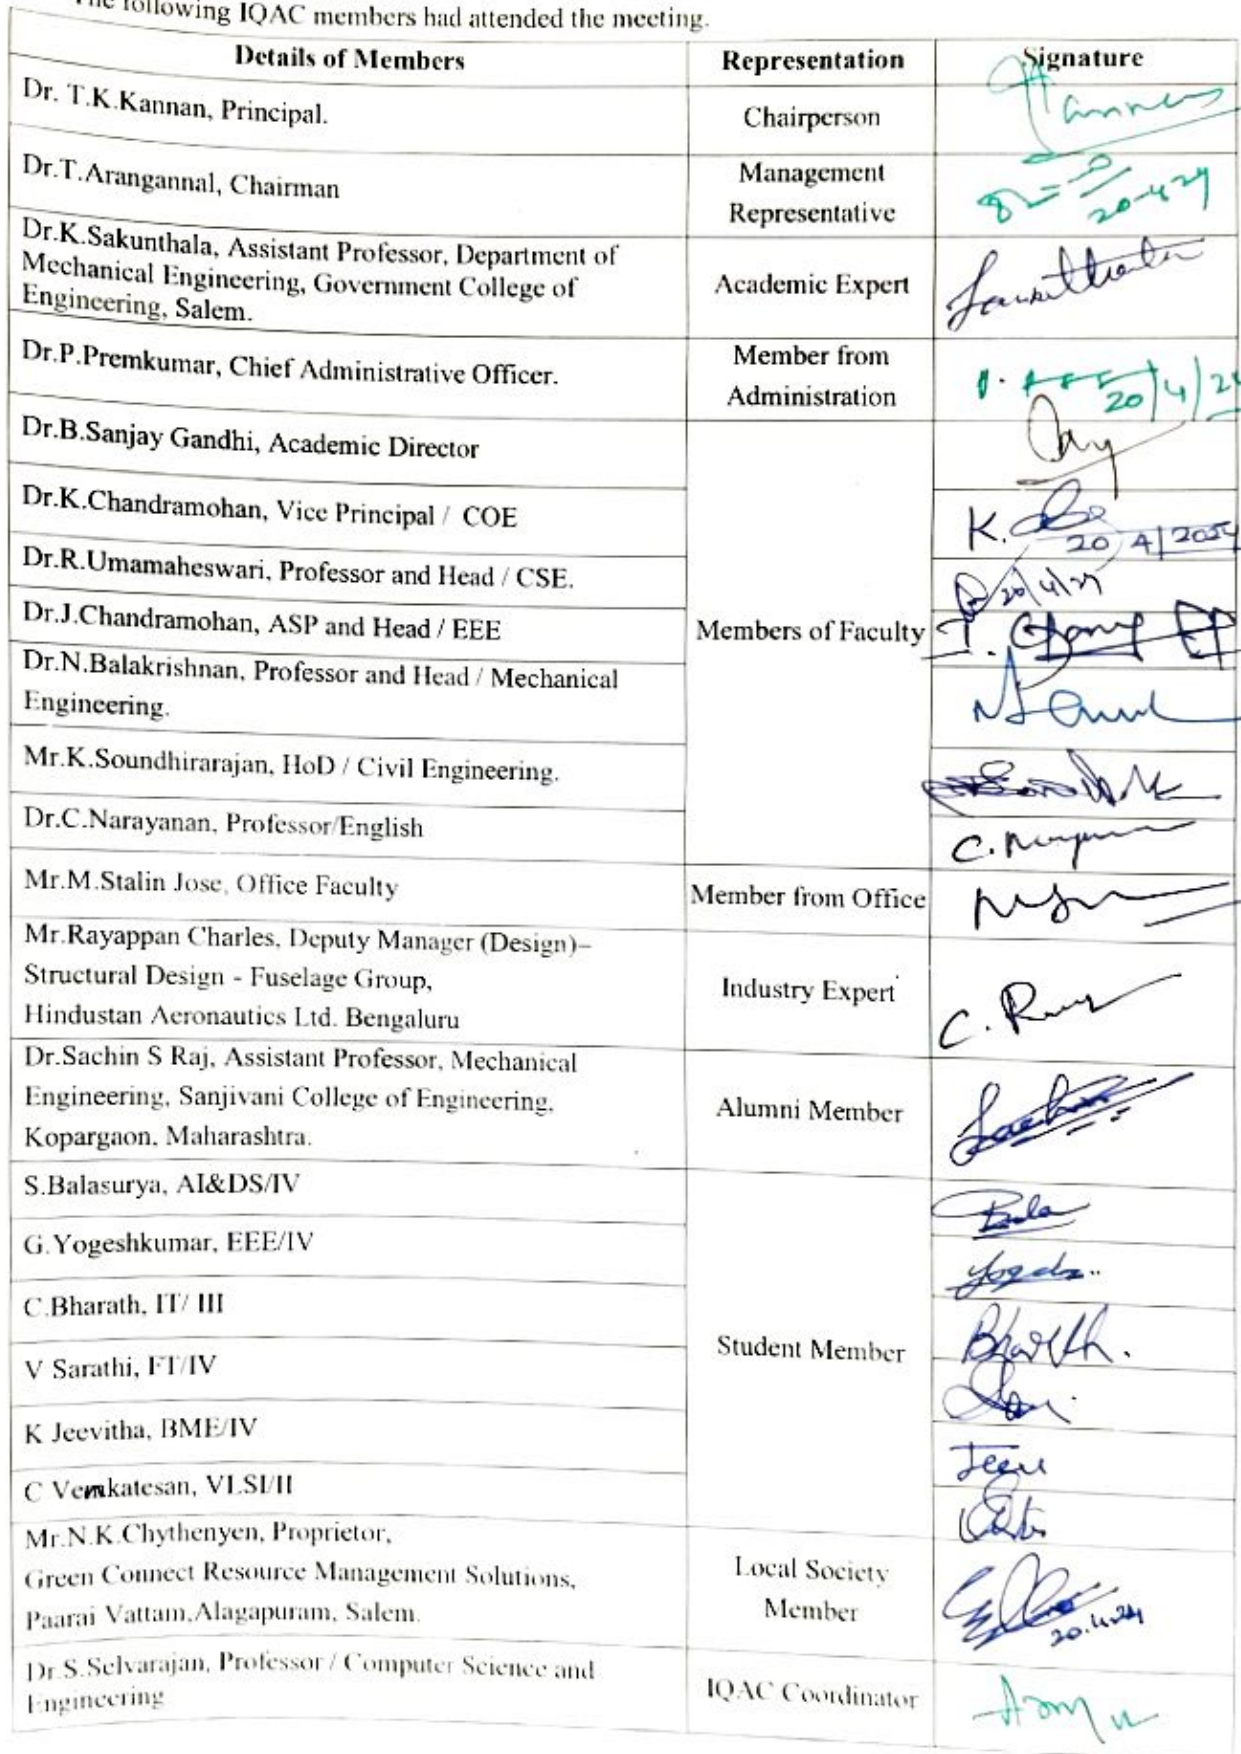 The following IQAC members had attended the meeting.
Details of Members Representation Signature
Dr. T.K.Kannan, Principal. Chairperson
Dr.T.Arangannal, Chairman Management Representative 20-4-24
Dr.K.Sakunthala, Assistant Professor, Department of
Mechanical Engineering, Government College of
Engineering, Salem.
Academic Expert
Dr.P.Premkumar, Chief Administrative Officer. Member from Administration 20/4/24
Dr.B.Sanjay Gandhi, Academic Director
Dr.K.Chandramohan, Vice Principal / COE K. 20/4/2024
Dr.R.Umamaheswari, Professor and Head / CSE. 20/4/24
Dr.J.Chandramohan, ASP and Head / EEE
Members of Faculty
Dr.N.Balakrishnan, Professor and Head / Mechanical
Engineering.
Mr.K.Soundhirarajan, HoD / Civil Engineering.
Dr.C.Narayanan, Professor/English
Mr.M.Stalin Jose, Office Faculty Member from Office
Mr.Rayappan Charles, Deputy Manager (Design)–
Structural Design - Fuselage Group,
Hindustan Aeronautics Ltd. Bengaluru
Industry Expert
Dr.Sachin S Raj, Assistant Professor, Mechanical
Engineering, Sanjivani College of Engineering,
Kopargaon, Maharashtra.
Alumni Member
S.Balasurya, AI&DS/IV Bala
G.Yogeshkumar, EEE/IV
C.Bharath, IT/ III Bharath.
Student Member
V Sarathi, FT/IV
K Jeevitha, BME/IV Jeevi
C Venkatesan, VLSI/II
Mr.N.K.Chythenyen, Proprietor,
Green Connect Resource Management Solutions,
Paarai Vattam,Alagapuram, Salem.
Local Society Member
20.4.24
Dr.S.Selvarajan, Professor / Computer Science and
Engineering
IQAC Coordinator